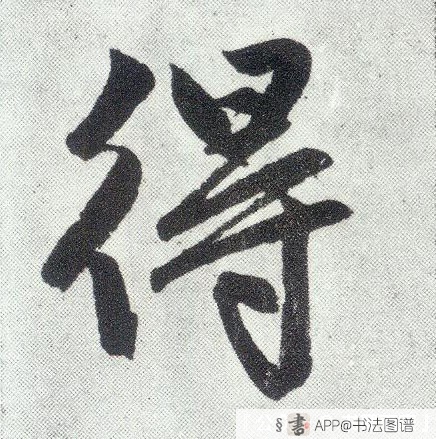 得
§書 APP@书法图谱